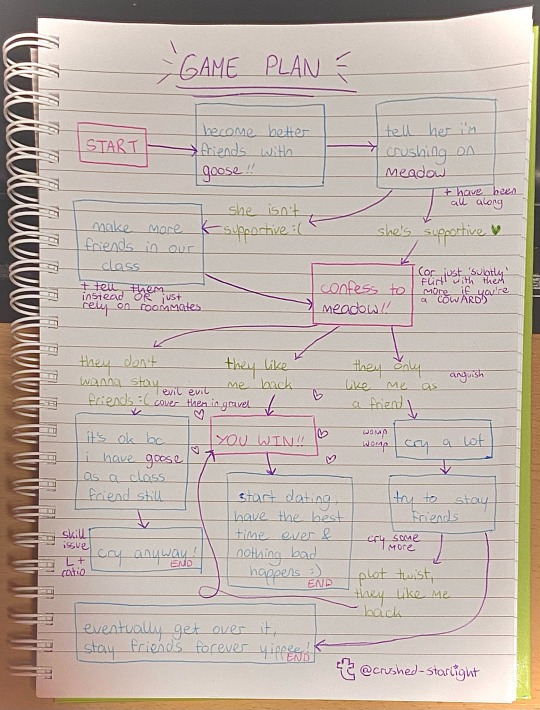 GAME PLAN
START
become better
friends with
goose!!
tell her i'm
crushing on
meadow
+ have been
all along
she isn't
supportive :(
she's supportive ♥
make more
friends in our
class
+ tell them
instead OR just
rely on roommates
confess to
meadow!!
(or just 'subtly'
flirt with them
more if you're
a COWARD)
they don't
wanna stay
friends :(
evil evil
cover them in gravel
they like
me back
they only
like me as
a friend
anguish
it's ok bc
i have goose
as a class
friend still
YOU WIN!!
womp
womp
cry a lot
skill
issue
L +
ratio
cry anyway!
END
start dating,
have the best
time ever &
nothing bad
happens :)
END
try to stay
friends
cry some
more
plot twist,
they like me
back
eventually get over it,
stay friends forever yippee!
END
@crushed-starlight